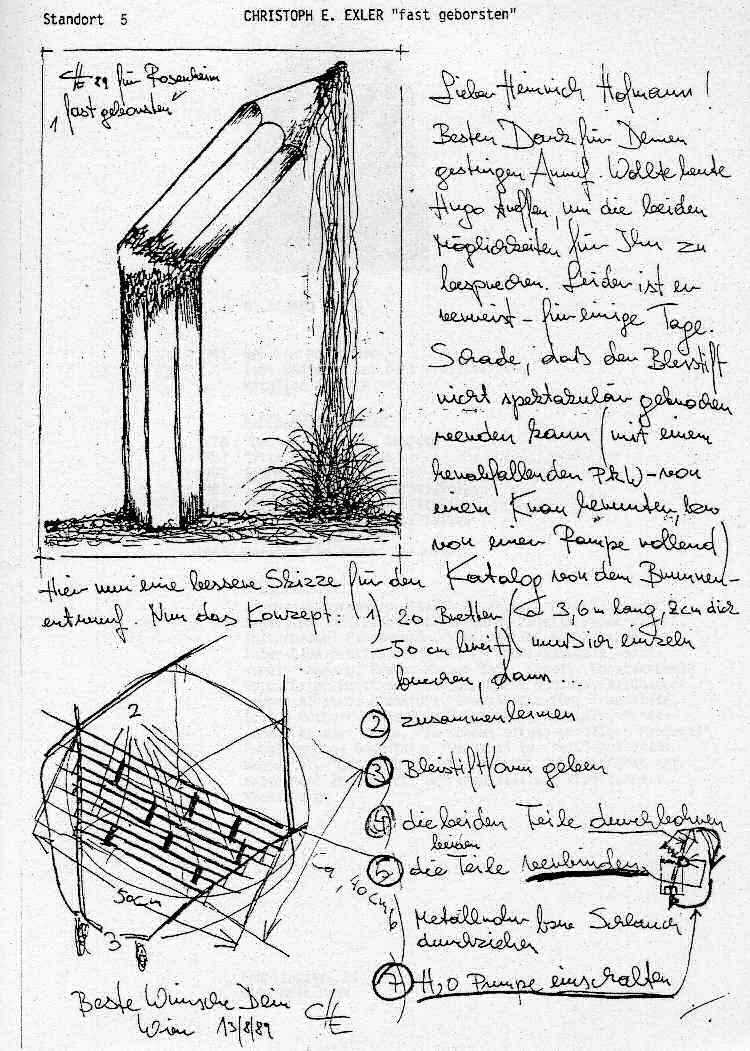 Standort 5
CHRISTOPH E. EXLER "fast geborsten"
CHE 89 für Rosenheim
"fast geborsten"
Lieber Heinrich Hofmann!
Besten Dank für Deinen
gestrigen Anruf. Wollte heute
Hugo treffen, um die beiden
Möglichkeiten für Ihn zu
besprechen. Leider ist er
verreist - für einige Tage.
Schade, daß der Bleistift
nicht spektakulär gebrochen
werden kann (mit einem
herabfallenden PKW - von
einem Kran herunter, bzw
von einer Rampe rollend)
Hier nun eine bessere Skizze für den Katalog von dem Brunnen-
entwurf. Nur das Konzept: 1) 20 Bretter (ca 3,6m lang, 2cm dick
- 50 cm breit) muß ich einzeln
brechen, dann...
2 zusammenleimen
3 Bleistiftform geben
4 die beiden Teile durchbohren
5 die beiden Teile verbinden
6 Metallrohr bzw Schlauch
durchziehen
7 H2O Pumpe einschalten
2
50cm
40cm
3
Beste Wünsche Dein
CHE
Wien 13/8/89